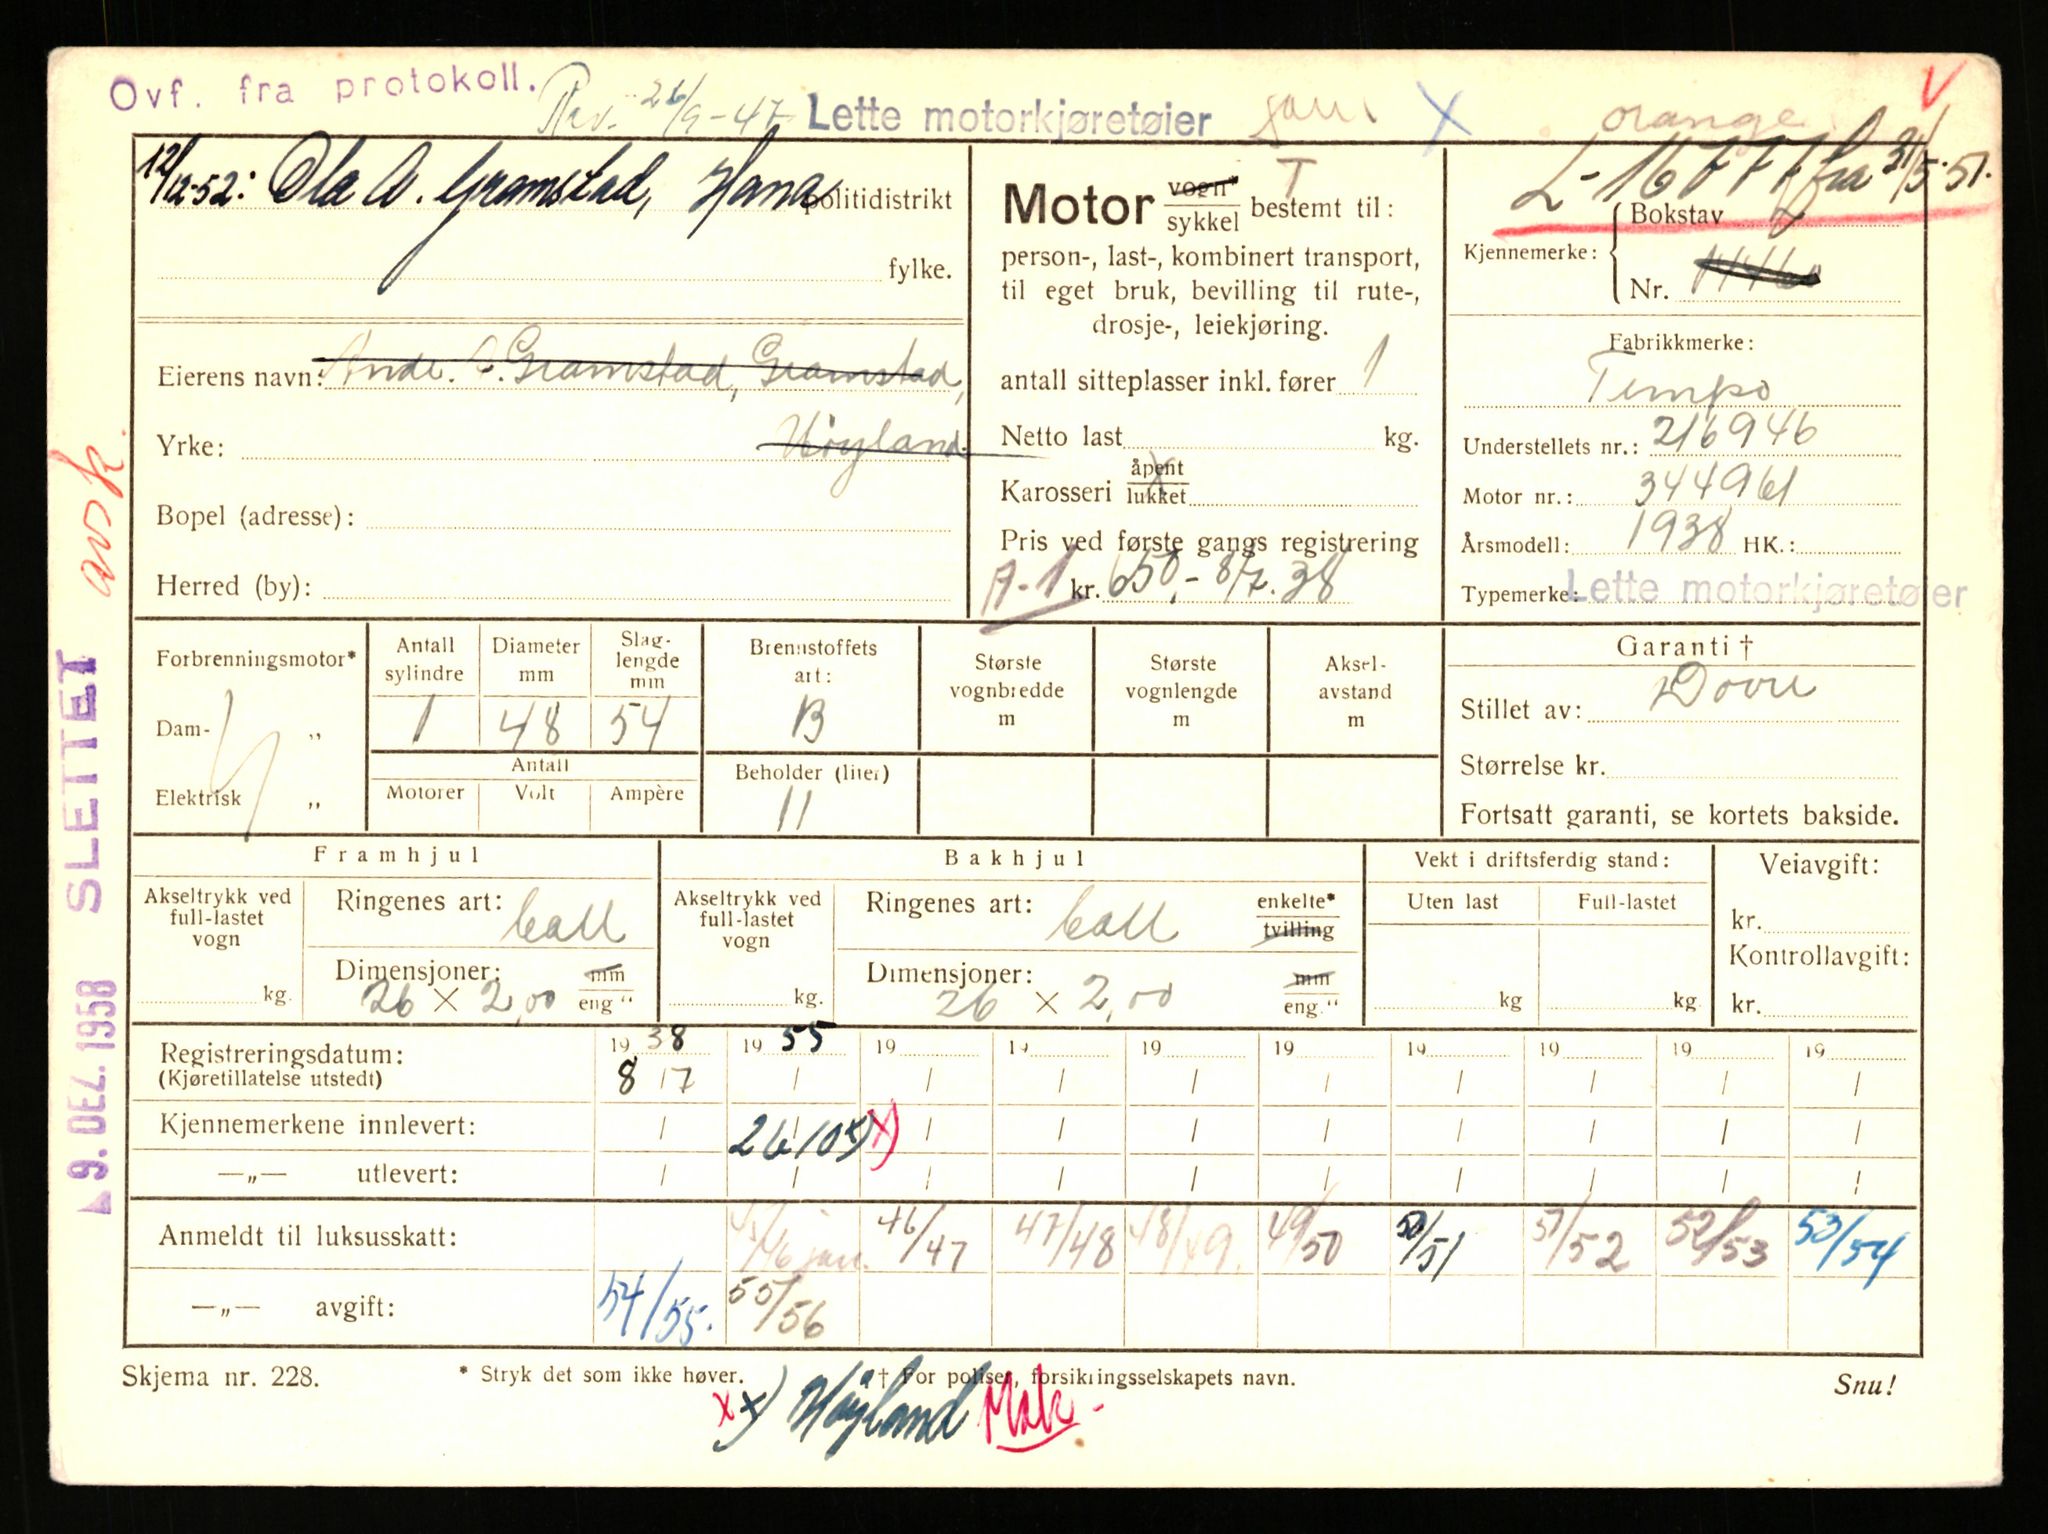 Ovf. fra protokoll.
Rev. 26/9-47
Lette motorkjøretøier
X
orange
V
12/12-52: Ola A. Gramstad, Hana
politidistrikt
fylke.
Eierens navn: Ande. A. Gramstad, Gramstad,
Yrke: Höyland.
Bopel (adresse):
Herred (by):
Motor vogn*/sykkel bestemt til:
T
person-, last-, kombinert transport,
til eget bruk, bevilling til rute-,
drosje-, leiekjøring.
antall sitteplasser inkl. fører 1
Netto last kg.
Karosseri åpent/lukket
Pris ved første gangs registrering
A-1 kr. 650,- 8/7.38
L-16777 fra 31/5-51.
Kjennemerke: Bokstav L
Nr.
Fabrikkmerke:
Tempo
Understellets nr.: 216946
Motor nr.: 344961
Årsmodell: 1938 HK.:
Typemerke: Lette motorkjøretøier
Forbrenningsmotor*
Dam- „
Elektrisk „
Antall sylindre 1
Diameter mm 48
Slag-lengde mm 54
Antall
Motorer Volt Ampère
Brennstoffets art: B
Beholder (liter) 11
Største vognbredde m
Største vognlengde m
Aksel-avstand m
Garanti †
Stillet av: Dovre
Størrelse kr.
Fortsatt garanti, se kortets bakside.
Framhjul
Akseltrykk ved full-lastet vogn kg.
Ringenes art: Ball
Dimensjoner: 26 x 2,00 mm/eng"
Bakhjul
Akseltrykk ved full-lastet vogn kg.
Ringenes art: Ball enkelte*/tvilling
Dimensjoner: 26 x 2,00 mm/eng."
Vekt i driftsferdig stand:
Uten last Full-lastet
kg kg.
Veiavgift:
kr.
Kontrollavgift:
kr.
Registreringsdatum: 19 38 19 55 19 19 19 19 19 19 19 19
(Kjøretillatelse utstedt) 8 / 7 / / / / / / / / /
Kjennemerkene innlevert: / 26/10 x) x) / / / / / / / /
—„— utlevert: / / / / / / / / / /
Anmeldt til luksusskatt: 45/46 jan. 46/47 47/48 48/49. 49/50 50/51 51/52 52/53 53/54
—„— avgift: 54/55. 55/56
Skjema nr. 228.
* Stryk det som ikke høver.
† For poliser, forsikringsselskapets navn.
Snu!
x x) Höyland Mak-
avsk.
SLETTET
9. DEZ. 1958